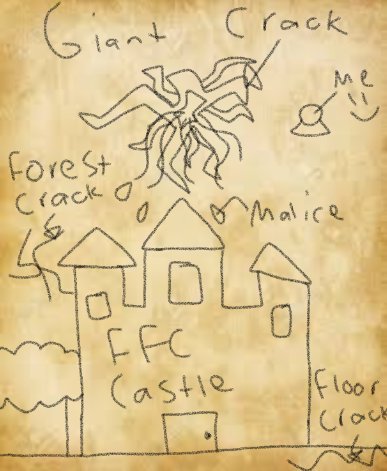 Giant Crack
Me
:)
Forest
Crack
Malice
FFC
Castle
Floor
Crack